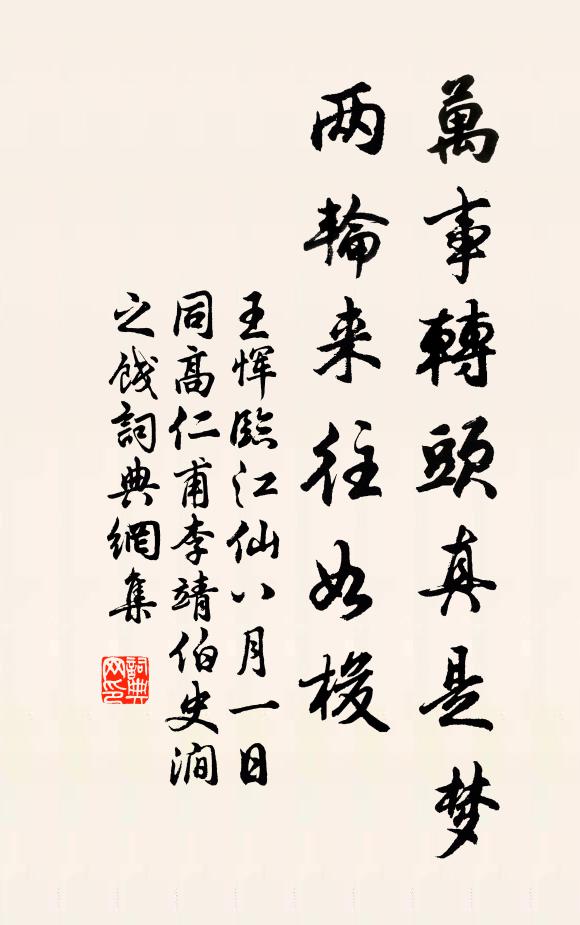 萬事轉頭真是梦
两輪来往如梭
王惲臨江仙八月一日
同高仁甫李靖伯史澗
之餞詞典網集
詞典网印